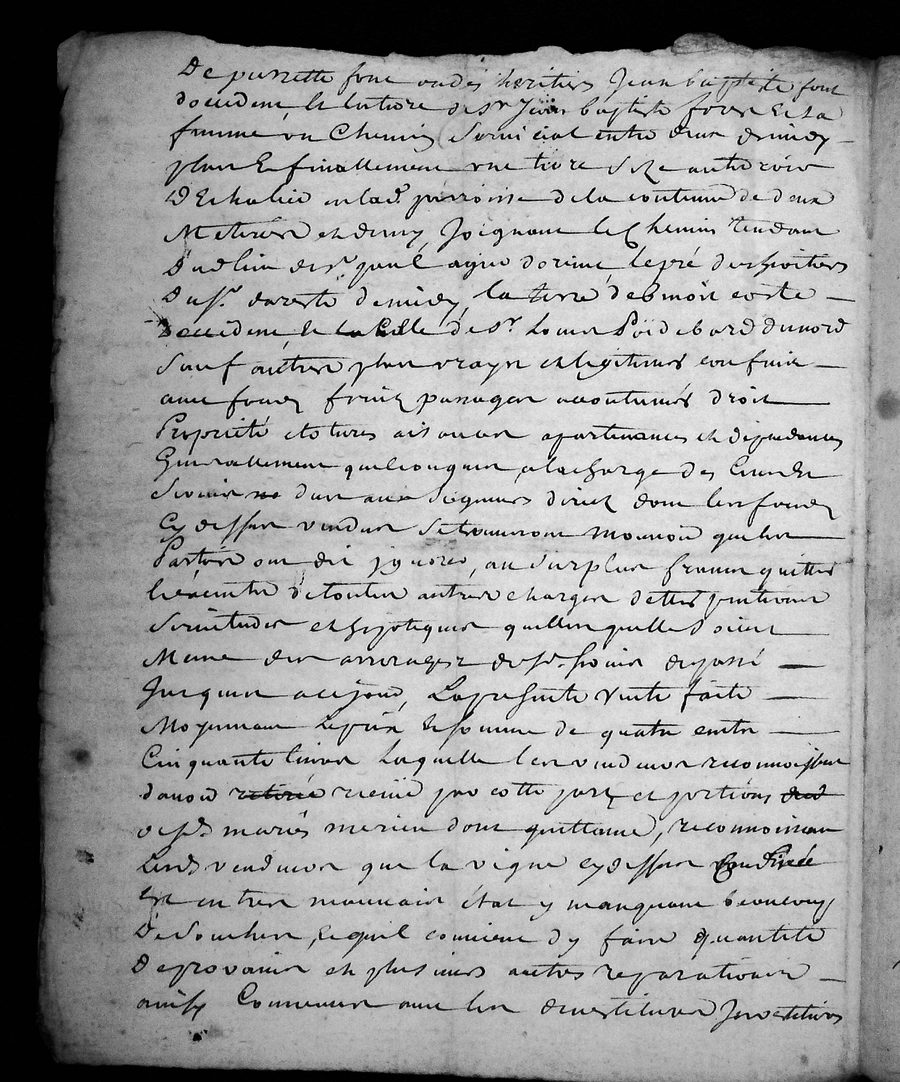 De pierrette font ou des heritiers Jean baptiste font
doccident et la terre de sr Jean baptiste font et sa
femme un Chemin Servicial entre deux de midy
plus Et finallement une terre Size au terroir
D'Echalie en lad. parroisse de la contenue de deux
Metières et demy, Joignant le Chemin tendant
Dudlieu de st paul a dorient le pré des hoitiers
Du sr. de midy, la terre de benoit coste
Doccident Et la Celle de sr. Louis du nord
Sauf autres plus vrays et legitimes confins
avec fonds fruits passages accoutumés droit
Proprieté clotures aisances apartenances et dependances
Generallement quelconques, a la charge des Cens Et
Servis dus aux Seigneurs direct dont les fonds
Cy dessus vendus Se trouveront mouvoir que les
Parties ont dit ignorer, au Surplus francs quittes
Et exemts de toutes autres charges dettes pentions
Servitudes et hipoteques quelles quelles soient
Meme des arrerages desd. servis du passé
Jusques a ce jour, La presente vente faite
Moyennant Le prix Et somme de quatre cents
Cinquante livres Laquelle les vendeurs reconnoissent
davoir retirée receüe par cette part et portions
desd. mariés merieu dont quittance, reconnoissant
Lesd vendeurs que la vigne cy dessus Confinée
Est en tres mauvais état y manquant beaucoup
De Souches, Et quil convient dy faire quantité
De provains et plusieurs autres reparations
ainsy Convenus avec les devestitures Investitures